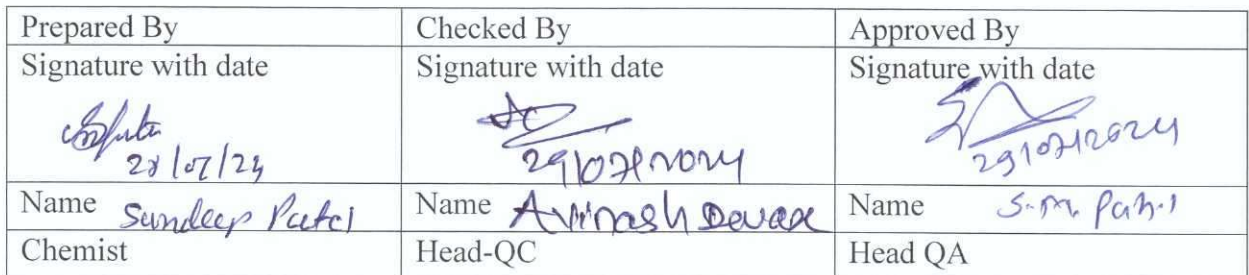 Prepared By
Checked By
Approved By
Signature with date
Signature with date
Signature with date
29/07/2024
29/07/2024
Name Sundeep Patel
Name Avinash
Name S.M. Patil
Chemist
Head-QC
Head QA